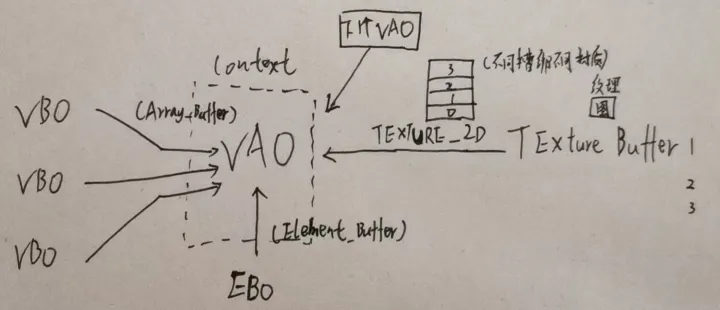 下个VAO
Context
3
2
1
0
(不同槽绑不同材质)
纹理
图
VBO
(Array_Buffer)
VAO
TEXTURE_2D
TExture Buffer 1
2
3
VBO
(Element_Buffer)
VBO
EBO